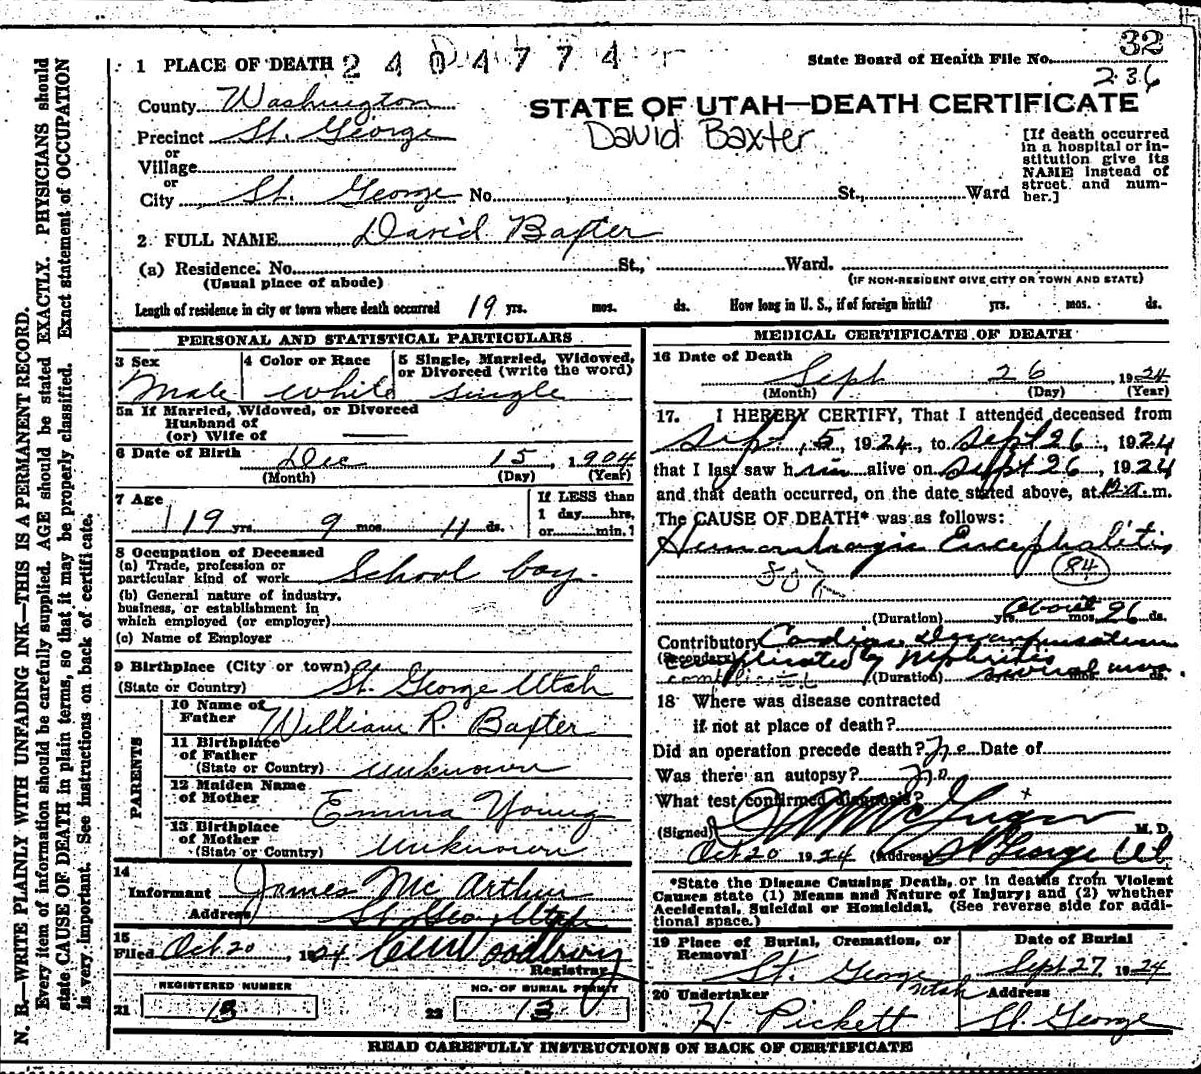 32
1 PLACE OF DEATH 2 4 0 4 7 7 4
State Board of Health File No.
236
County Washington
STATE OF UTAH—DEATH CERTIFICATE
David Baxter
Precinct St. George
or
Village
or
City St. George No. St., Ward
[If death occurred
in a hospital or in-
stitution give its
NAME instead of
street and num-
ber.]
2 FULL NAME David Baxter
(a) Residence. No. St., Ward.
(Usual place of abode)
(IF NON-RESIDENT GIVE CITY OR TOWN AND STATE)
Length of residence in city or town where death occurred 19 yrs. mos. ds. How long in U. S., if of foreign birth? yrs. mos. ds.
PERSONAL AND STATISTICAL PARTICULARS
3 Sex
Male
4 Color or Race
White
5 Single, Married, Widowed,
or Divorced (write the word)
single
5a If Married, Widowed, or Divorced
Husband of
(or) Wife of
6 Date of Birth Dec 15, 1904
(Month) (Day) (Year)
7 Age
19 yrs 9 mos 11 ds.
If LESS than
1 day hrs,
or min.?
8 Occupation of Deceased
(a) Trade, profession or
particular kind of work School boy.
(b) General nature of industry,
business, or establishment in
which employed (or employer)
(c) Name of Employer
9 Birthplace (City or town)
(State or Country) St. George Utah
PARENTS
10 Name of
Father William R. Baxter
11 Birthplace
of Father
(State or Country) unknown
12 Maiden Name
of Mother Emma Young
13 Birthplace
of Mother
(State or Country) Unknown
14
Informant James Mc Arthur
Address St George Utah
15
Filed Oct 20, 1924
Registrar
REGISTERED NUMBER
21 13
NO. OF BURIAL PERMIT
22 13
MEDICAL CERTIFICATE OF DEATH
16 Date of Death
Sept 26, 1924
(Month) (Day) (Year)
17. I HEREBY CERTIFY, That I attended deceased from
Sept, 5, 1924, to Sept 26, 1924
that I last saw him alive on Sept 26, 1924
and that death occurred, on the date stated above, at m.
The CAUSE OF DEATH* was as follows:
Hemorrhagic Encephalitis
84
(Duration) yrs. about mos. 26 ds.
Contributory Cardiac Decompensation
(Secondary) complicated by Nephritis
complicated (Duration) several mos. ds.
18 Where was disease contracted
if not at place of death?
Did an operation precede death? No Date of
Was there an autopsy? no
What test confirmed diagnosis?
(Signed) M. D.
Oct 20 1924 (Address) St George Ut
*State the Disease Causing Death, or in deaths from Violent
Causes state (1) Means and Nature of Injury; and (2) whether
Accidental, Suicidal or Homicidal. (See reverse side for addi-
tional space.)
19 Place of Burial, Cremation, or
Removal
St. George Utah
Date of Burial
Sept 27 1924
20 Undertaker
H. Pickett
Address
St George
READ CAREFULLY INSTRUCTIONS ON BACK OF CERTIFICATE
N. B.—WRITE PLAINLY WITH UNFADING INK—THIS IS A PERMANENT RECORD.
Every item of information should be carefully supplied. AGE should be stated EXACTLY. PHYSICIANS should
state CAUSE OF DEATH in plain terms, so that it may be properly classified. Exact statement of OCCUPATION
is very important. See instructions on back of certificate.